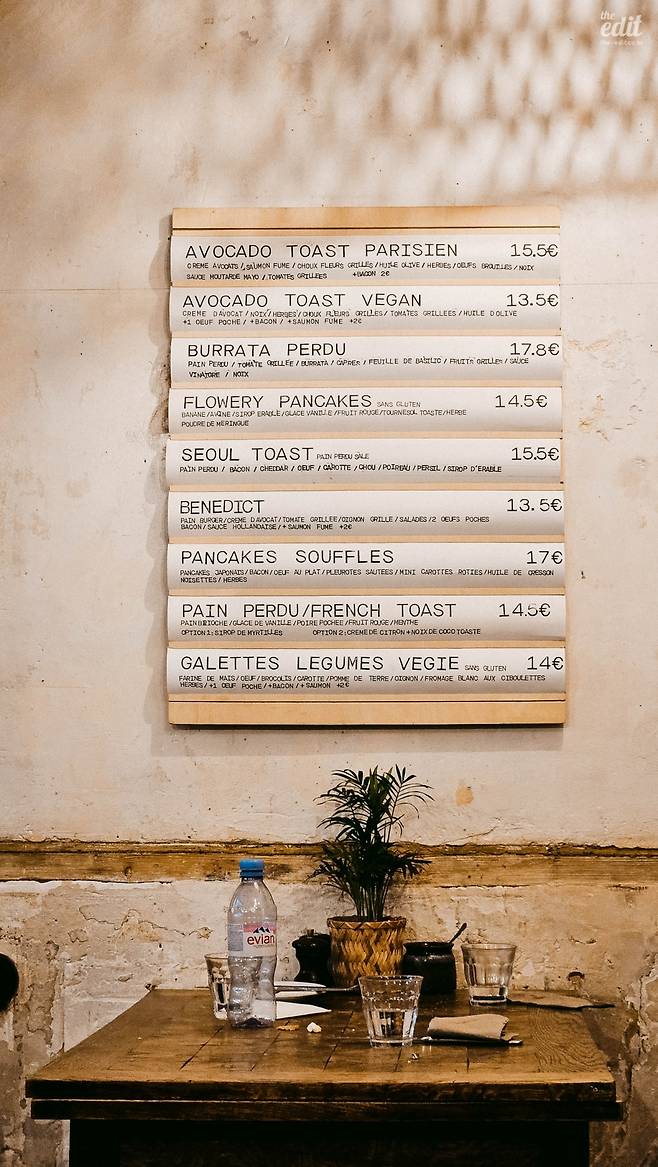 the
edit
AVOCADO TOAST PARISIEN 15.5€
CREME AVOCATS/SAUMON FUME/CHOUX FLEURS GRILLES/HUILE OLIVE/HERBES/OEUFS BROUILLES/NOIX
SAUCE MOUTARDE MAYO/TOMATES GRILLEES +BACON 2€
AVOCADO TOAST VEGAN 13.5€
CREME D'AVOCAT/NOIX/HERBES/CHOUX FLEURS GRILLES/TOMATES GRILLEES/HUILE D'OLIVE
+1 OEUF POCHE/+BACON/+SAUMON FUME +2€
BURRATA PERDU 17.8€
PAIN PERDU/TOMATE GRILLEE/BURRATA/CAPRES/FEUILLE DE BASILIC/FRUITR GRILLER/SAUCE
VINAIGRE / NOIX
FLOWERY PANCAKES SANS GLUTEN 14.5€
BANANE/AVOINE/SIROP ERABLE/GLACE VANILLE/FRUIT ROUGE/TOURNESOL TOASTE/HERBE
POUDRE DE MERINGUE
SEOUL TOAST PAIN PERDU SALE 15.5€
PAIN PERDU / BACON / CHEDDAR / OEUF / CAROTTE / CHOU / POIREAU / PERSIL / SIROP D'ERABLE
BENEDICT 13.5€
PAIN BURGER/CREME D'AVOCAT/TOMATE GRILLEE/OIGNON GRILLE/SALADES/2 OEUFS POCHES
BACON/SAUCE HOLLANDAISE/+SAUMON FUME +2€
PANCAKES SOUFFLES 17€
PANCAKES JAPONAIS/BACON/OEUF AU PLAT/PLEUROTES SAUTEES/MINI CAROTTES ROTIES/HUILE DE CRESSON
NOISETTES/HERBES
PAIN PERDU/FRENCH TOAST 14.5€
PAIN BRIOCHE/GLACE DE VANILLE/POIRE POCHEE/FRUIT ROUGE/MENTHE
OPTION 1: SIROP DE MYRTILLES OPTION 2: CREME DE CITRON + NOIX DE COCO TOASTE
GALETTES LEGUMES VEGIE SANS GLUTEN 14€
FARINE DE MAIS/OEUF/BROCOLIS/CAROTTE/POMME DE TERRE/OIGNON/FROMAGE BLANC AUX CIBOULETTES
HERBES/+1 OEUF POCHE/+BACON/+SAUMON +2€
evian